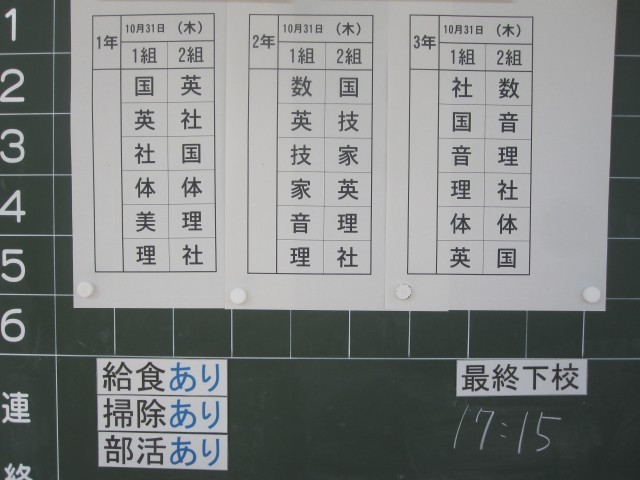 1
2
3
4
5
6
連
終
1年 10月31日 (木)
1組 2組
国 英
英 社
社 国
体 体
美 理
理 社
2年 10月31日 (木)
1組 2組
数 国
英 技
技 家
家 英
音 理
理 社
3年 10月31日 (木)
1組 2組
社 数
国 音
音 理
理 社
体 体
英 国
給食あり
掃除あり
部活あり
最終下校
17:15